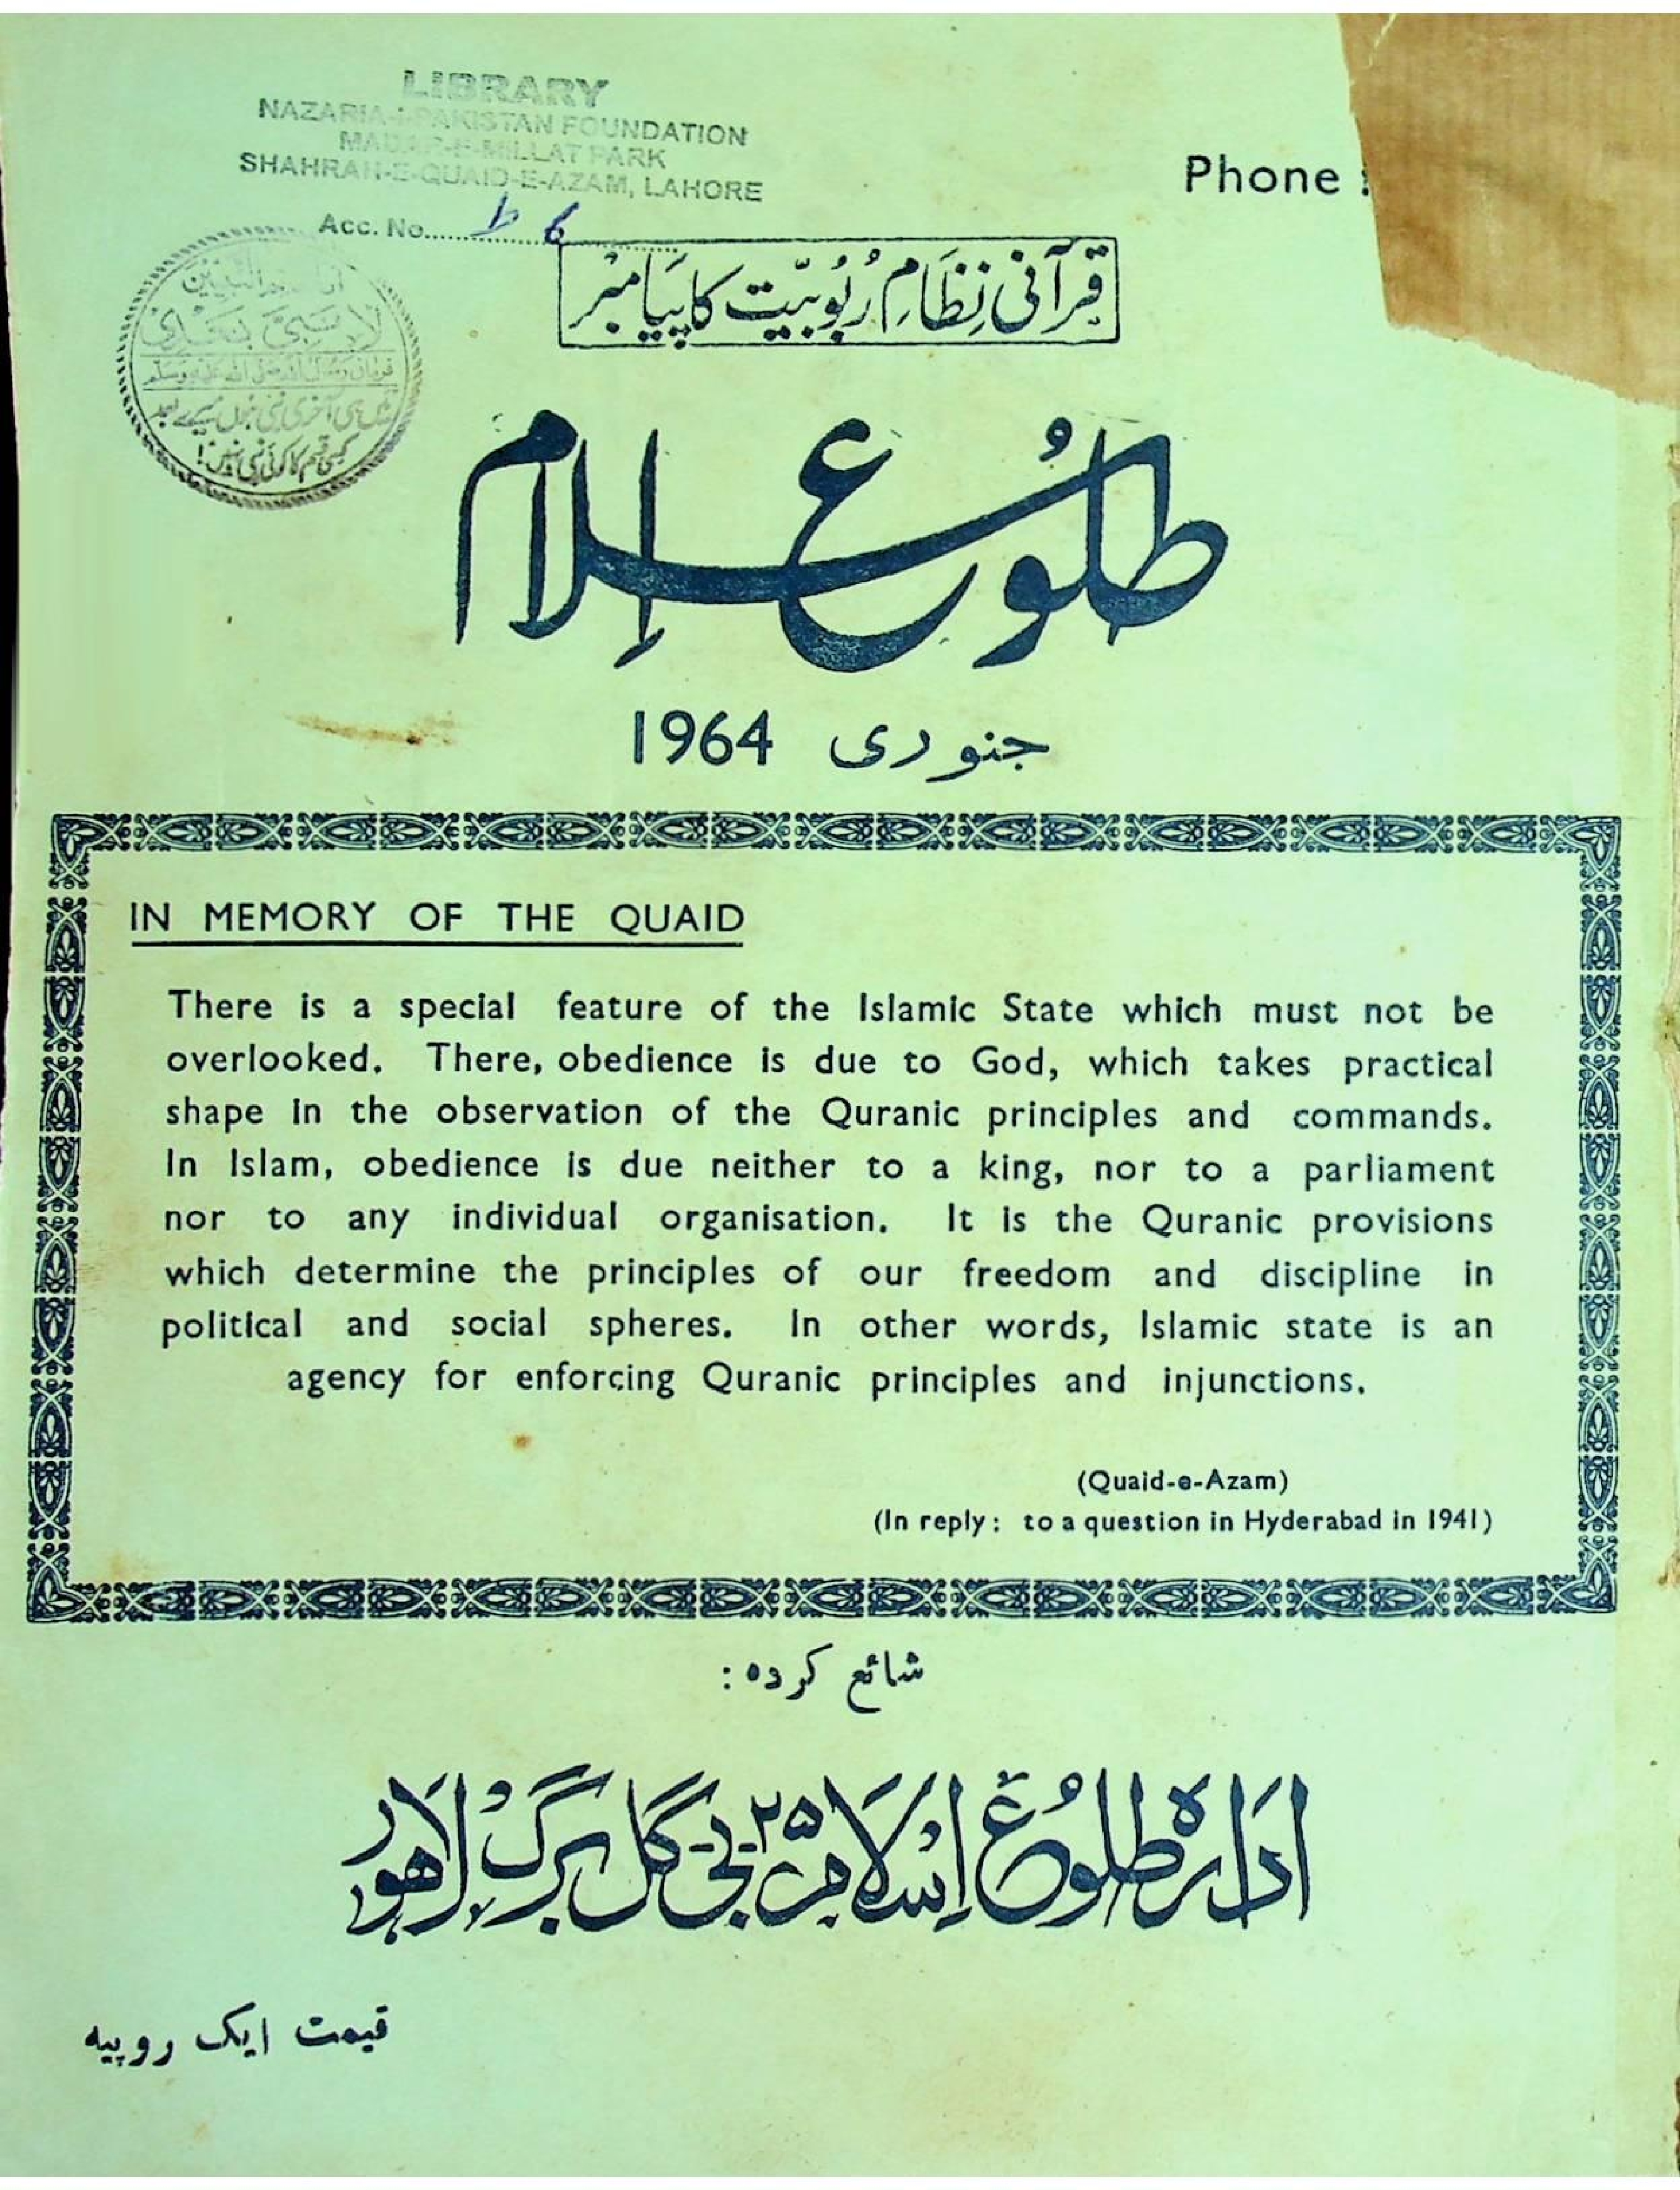 LIBRARY
NAZARIA-I-PAKISTAN FOUNDATION
MADAR-E-MILLAT PARK
SHAHRAH-E-QUAID-E-AZAM, LAHORE
Acc. No.
Phone :
لا نبی بعدی
فرمان رسول اللہ صلی اللہ علیہ وسلم
میں ہی آخری نبی ہوں میرے بعد
کسی قسم کا کوئی نبی نہیں!
قرآنی نظامِ ربُوبیّت کا پیامبر
طلُوعِ اِسلام
جنوری 1964
IN MEMORY OF THE QUAID
There is a special feature of the Islamic State which must not be
overlooked. There, obedience is due to God, which takes practical
shape in the observation of the Quranic principles and commands.
In Islam, obedience is due neither to a king, nor to a parliament
nor to any individual organisation. It is the Quranic provisions
which determine the principles of our freedom and discipline in
political and social spheres. In other words, Islamic state is an
agency for enforcing Quranic principles and injunctions.
(Quaid-e-Azam)
(In reply : to a question in Hyderabad in 1941)
شائع کردہ :
ادارہ طلُوعِ اِسلام ۲۵ بی گل برگ لاہور
قیمت ایک روپیہ